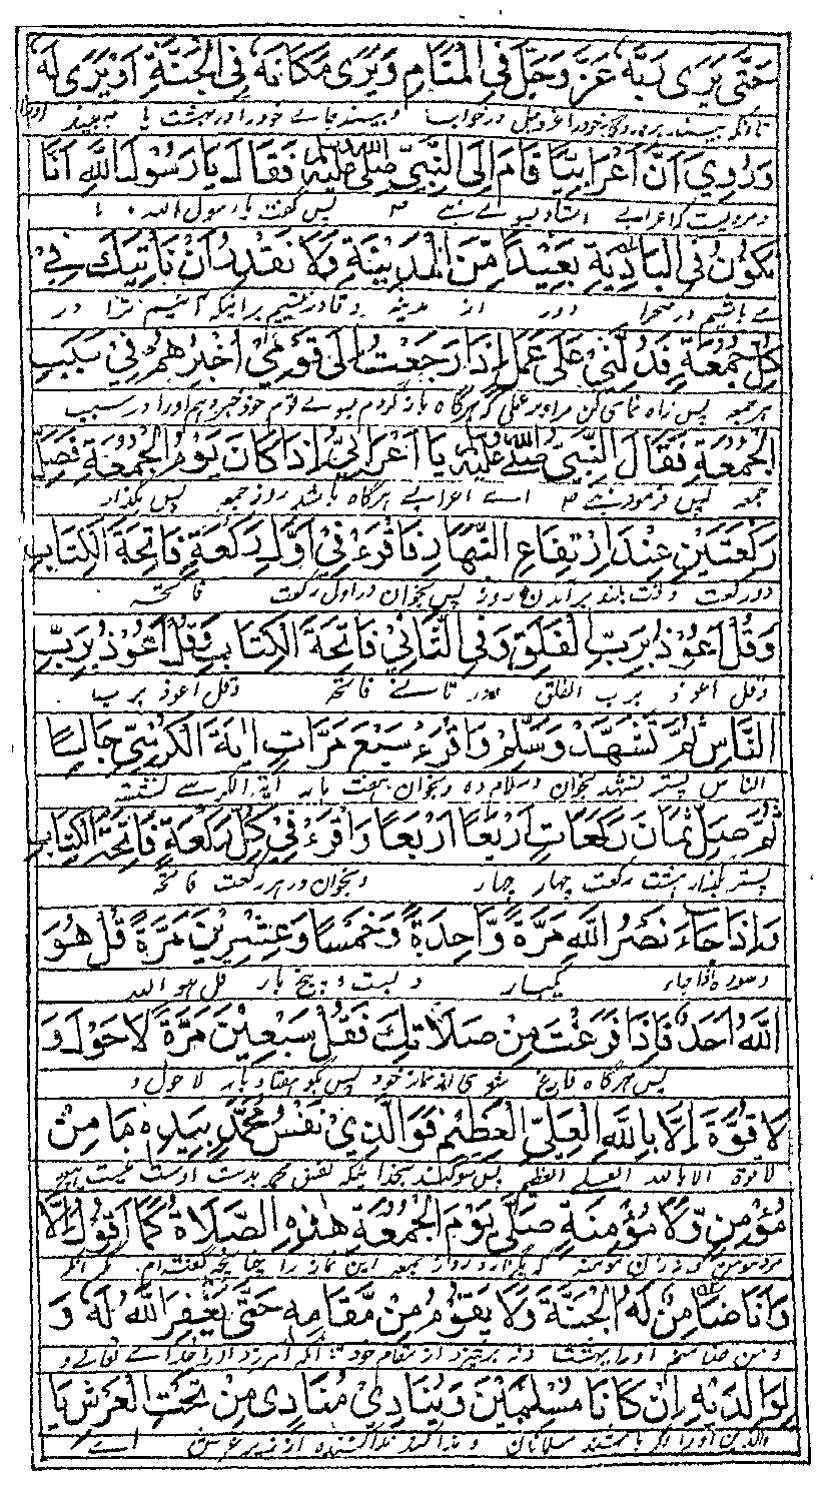 حَتَّى يَرَى رَبَّهُ عَزَّ وَجَلَّ فِي الْمَنَامِ وَيَرَى مَكَانَهُ فِي الْجَنَّةِ اَوْ يُرَى لَهُ
تا آنکه بیند پروردگار خود را عز و جل در خواب و بیند جاے خود را در بهشت یا
وَرُوِيَ اَنَّ اَعْرَابِيًّا قَامَ اِلَى النَّبِيِّ صَلَّى اللهُ عَلَيْهِ فَقَالَ يَا رَسُولَ اللَّهِ اَنَا
اعرابے استاد بسوے نبے ص پس گفت یا رسول الله
نَكُونُ فِي الْبَادِيَةِ بَعِيْدًا مِّنَ الْمَدِيْنَةِ وَلَا نَقْدِرُ اَنْ نَاْتِيَكَ فِيْ
مے باشیم در صحرا دور از مدینه و قادر نیستیم بر اینکه آئیم ترا در
كُلِّ جُمُعَةٍ فَدُلَّنِيْ عَلَى عَمَلٍ اِذَا رَجَعْتُ اِلَى قَوْمِيْ اُخْبِرُهُمْ فِيْ سَبَبِ
هر جمعه پس راه نمائی کن مرا بر عملی که هرگاه باز گردم بسوے قوم خود خبر دهم اورا در سبب
الْجُمُعَةِ فَقَالَ النَّبِيُّ صَلَّى اللهُ عَلَيْهِ يَا اَعْرَابِيُّ اِذَا كَانَ يَوْمُ الْجُمُعَةِ فَصَلِّ
جمعه پس فرمود نبے ص اے اعرابے هرگاه باشد روز جمعه پس بگذار
رَكْعَتَيْنِ عِنْدَ ارْتِفَاعِ النَّهَارِ فَاقْرَءْ فِيْ اَوَّلِ رَكْعَةٍ فَاتِحَةَ الْكِتَابِ
دو رکعت وقت بلند بر آمدن روز پس بخوان در اول رکعت فاتحه
وَقُلْ اَعُوْذُ بِرَبِّ الْفَلَقِ وَفِي الثَّانِيْ فَاتِحَةَ الْكِتَابِ وَقُلْ اَعُوْذُ بِرَبِّ
وقل اعوذ برب الفلق و در ثانے فاتحه وقل اعوذ برب
النَّاسِ ثُمَّ تَشَهَّدْ وَسَلِّمْ وَاقْرَءْ سَبْعَ مَرَّاتٍ ايَةَ الْكُرْسِيِّ جَالِسًا
الناس پستر تشهد بخوان و سلام ده و بخوان هفت بار آیة الکرسے نشسته
ثُمَّ صَلِّ ثَمَانَ رَكَعَاتٍ اَرْبَعًا اَرْبَعًا وَاقْرَءْ فِيْ كُلِّ رَكْعَةٍ فَاتِحَةَ الْكِتَابِ
پستر بگذار هشت رکعت چهار چهار و بخوان در هر رکعت فاتحه
وَاِذَا جَاءَ نَصْرُ اللَّهِ مَرَّةً وَّاحِدَةً وَخَمْسًا وَعِشْرِيْنَ مَرَّةً قُلْ هُوَ
وسوره اذا جاء یکبار و بست و پنج بار قل هو الله
اللَّهُ اَحَدٌ فَاِذَا فَرَغْتَ مِنْ صَلَاتِكَ فَقُلْ سَبْعِيْنَ مَرَّةً لَا حَوْلَ وَ
پس هرگاه فارغ شوی از نماز خود پس بگو هفتاد بار لا حول و
لَا قُوَّةَ اِلَّا بِاللَّهِ الْعَلِيِّ الْعَظِيْمِ فَوَالَّذِيْ نَفْسُ مُحَمَّدٍ بِيَدِهِ مَا مِنْ
لا قوة الا بالله العلے العظیم پس سوگند بخدائیکه نفس محمد بدست اوست نیست هیچ
مُؤْمِنٍ وَّلَا مُؤْمِنَةٍ صَلَّى يَوْمَ الْجُمُعَةِ هٰذِهِ الصَّلَاةَ كَمَا اَقُوْلُ اِلَّا
مرد مومن و نه زن مومنه که بگذارد روز جمعه این نماز را چنانچه گفته ام مگر آنکه
وَاَنَا ضَامِنٌ لَهُ الْجَنَّةَ وَلَا يَقُوْمُ مِنْ مَّقَامِهِ حَتَّى يَغْفِرَ اللَّهُ لَهُ وَ
و من ضامنم او را بهشت و نه برخیزد از مقام خود تا آنکه آمرزد او را خداے تعالے و
لِوَالِدَيْهِ اِنْ كَانَا مُسْلِمَيْنِ وَيُنَادِيْ مُنَادِي مِنْ تَحْتِ الْعَرْشِ يَا
والدین او را اگر باشند مسلمانان و ندا کند ندا کننده از زیر عرش اے